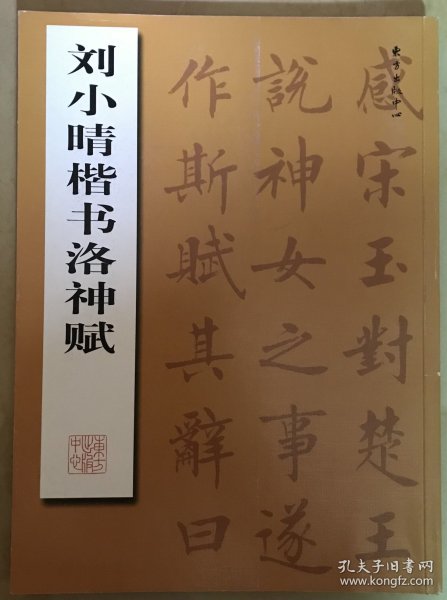 刘小晴楷书洛神赋
東方出版中心
東方出版中心
感宋玉對楚王
說神女之事遂
作斯賦其辭曰
孔夫子旧书网
www.kongfz.com